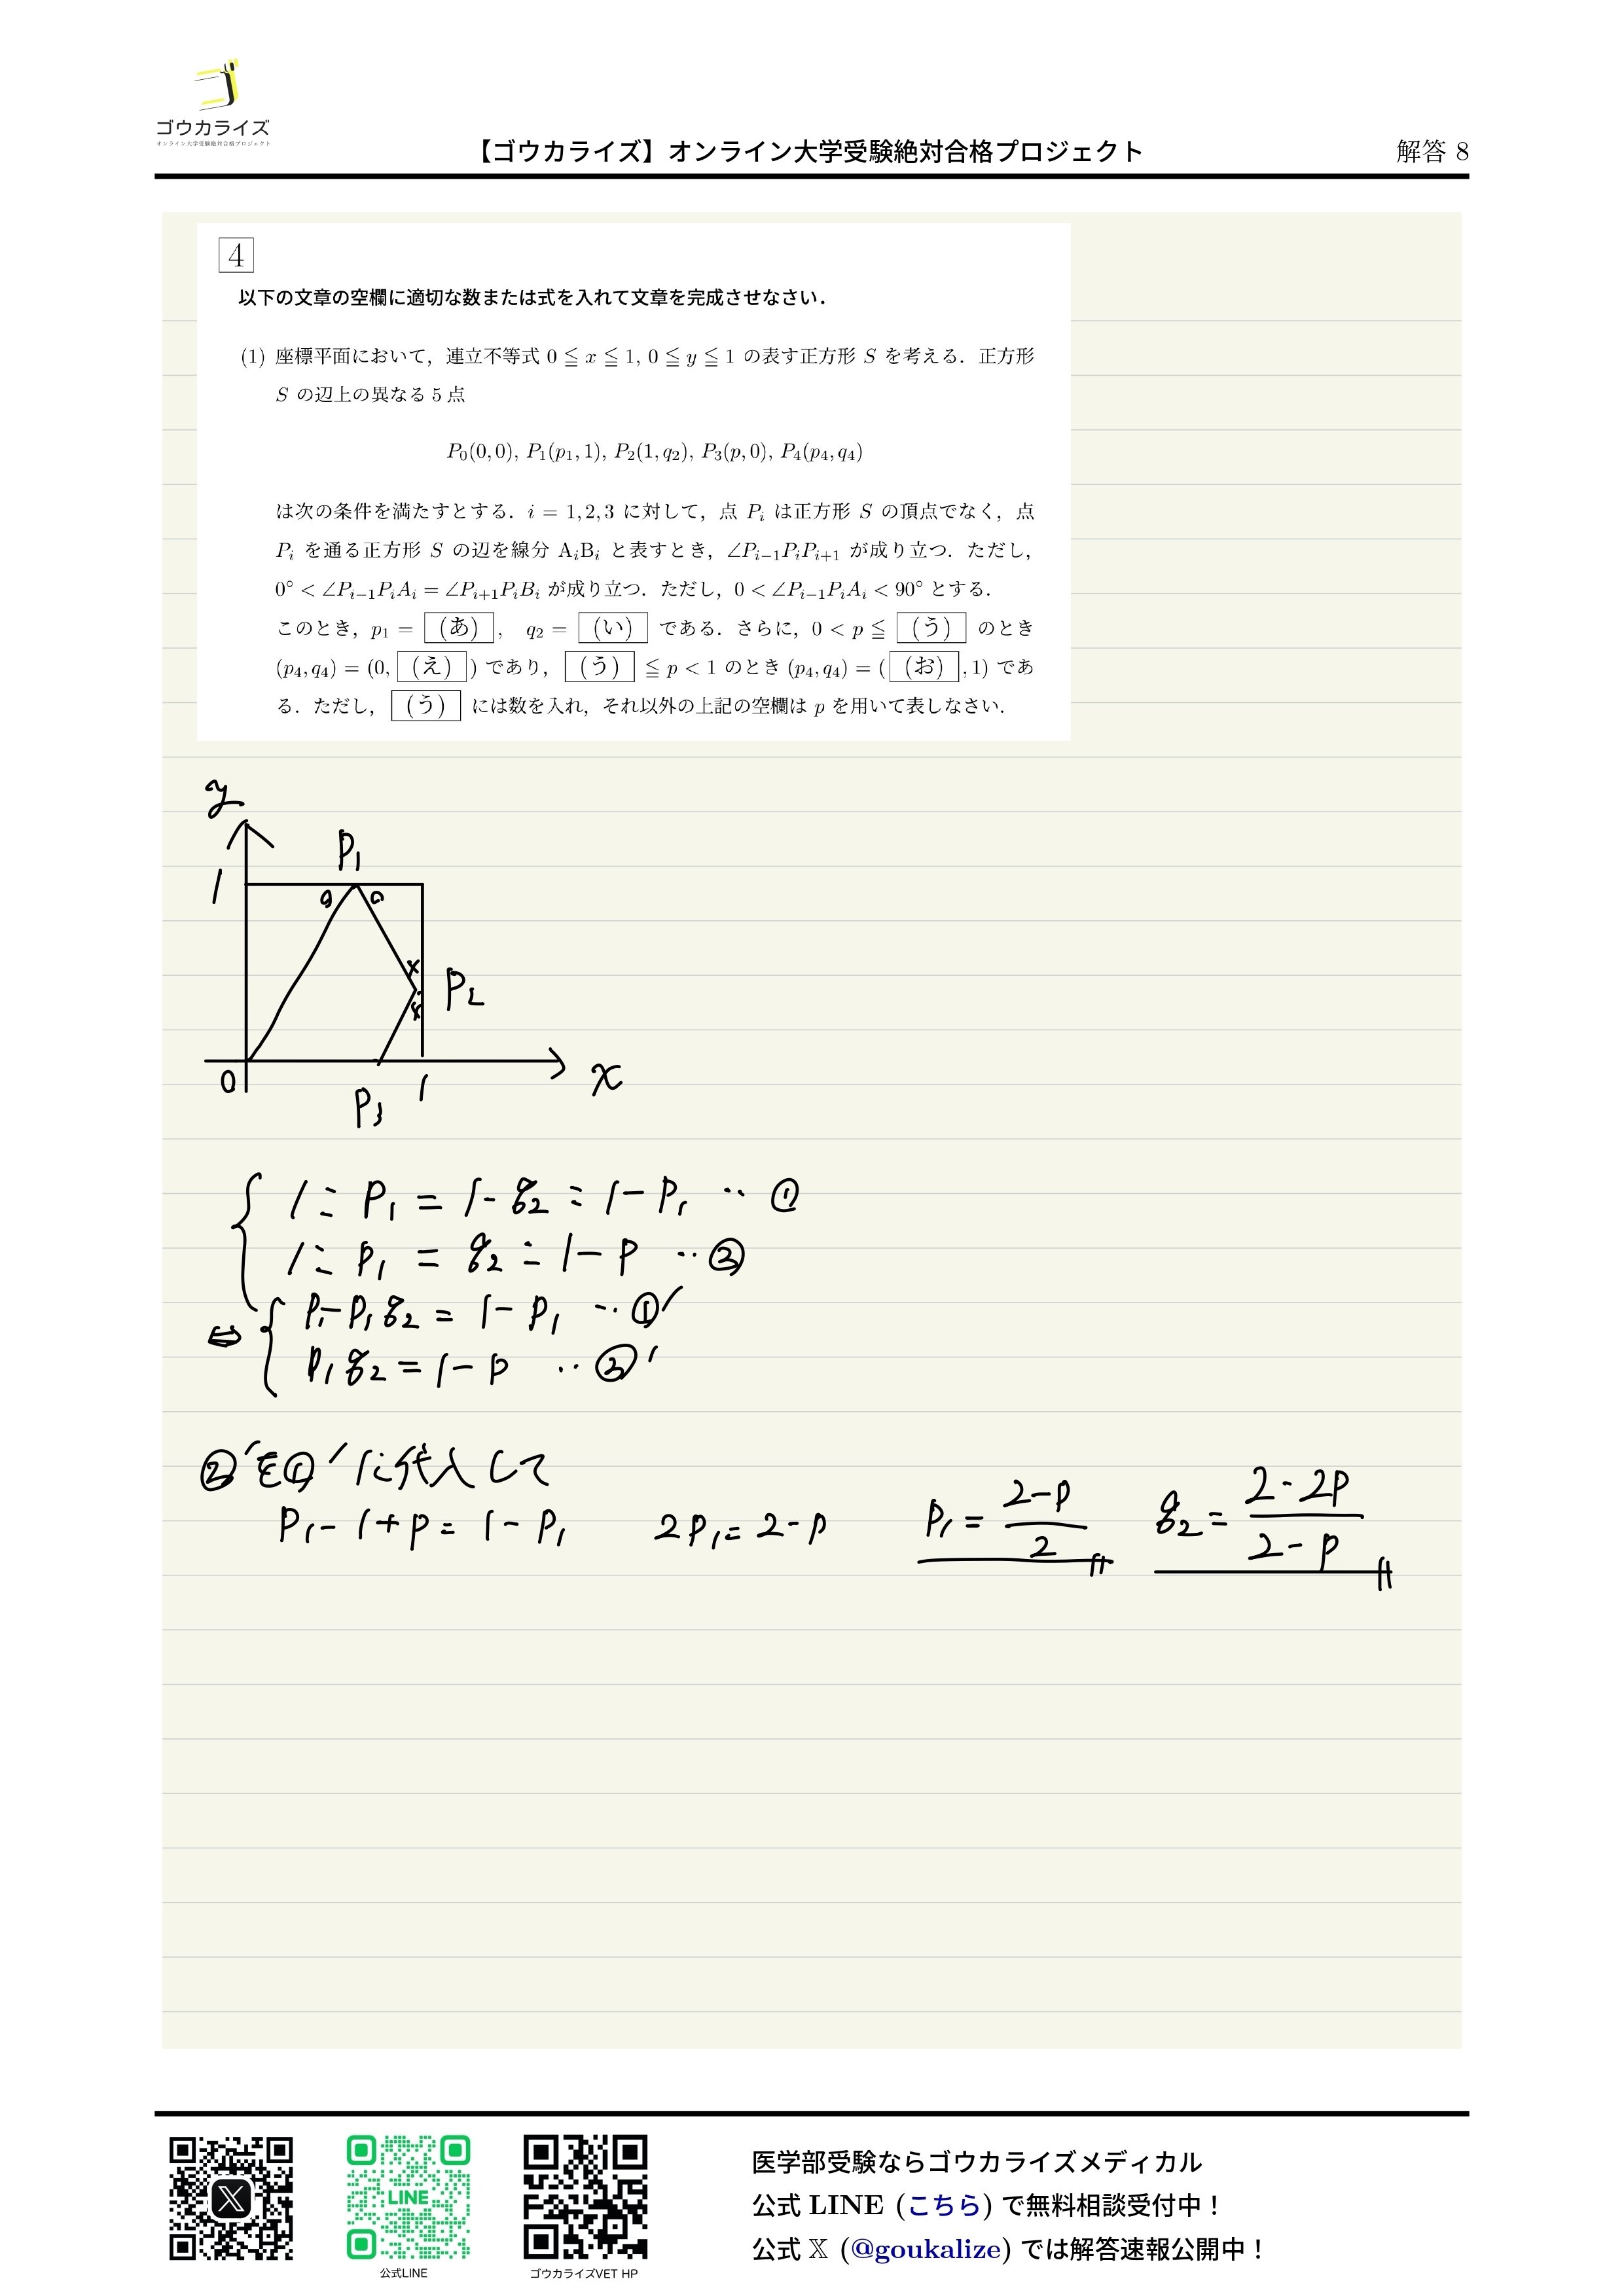 ゴウカライズ
オンライン大学受験絶対合格プロジェクト
【ゴウカライズ】オンライン大学受験絶対合格プロジェクト
解答 8
4
以下の文章の空欄に適切な数または式を入れて文章を完成させなさい．
(1) 座標平面において，連立不等式 0 ≦ x ≦ 1, 0 ≦ y ≦ 1 の表す正方形 S を考える．正方形
S の辺上の異なる 5 点
P₀(0, 0), P₁(p₁, 1), P₂(1, q₂), P₃(p, 0), P₄(p₄, q₄)
は次の条件を満たすとする．i = 1, 2, 3 に対して，点 Pᵢ は正方形 S の頂点でなく，点
Pᵢ を通る正方形 S の辺を線分 AᵢBᵢ と表すとき，∠Pᵢ₋₁PᵢPᵢ₊₁ が成り立つ．ただし，
0° < ∠Pᵢ₋₁PᵢAᵢ = ∠Pᵢ₊₁PᵢBᵢ が成り立つ．ただし，0 < ∠Pᵢ₋₁PᵢAᵢ < 90° とする．
このとき，p₁ = (あ), q₂ = (い) である．さらに，0 < p ≦ (う) のとき
(p₄, q₄) = (0, (え)) であり，(う) ≦ p < 1 のとき (p₄, q₄) = ((お), 1) であ
る．ただし，(う) には数を入れ，それ以外の上記の空欄は p を用いて表しなさい．
y
P₁
1
P₂
0
P₃
1
x
1 : P₁ = 1 - q₂ : 1 - P₁ ‥ ①
1 : P₁ = q₂ : 1 - P ‥ ②
⇔ P₁ - P₁q₂ = 1 - P₁ ‥ ①′
P₁q₂ = 1 - P ‥ ②′
②′を①′に代入して
P₁ - 1 + P = 1 - P₁ 2P₁ = 2 - P P₁ = (2-P)/2 q₂ = (2-2P)/(2-P)
LINE
公式LINE
ゴウカライズVET HP
医学部受験ならゴウカライズメディカル
公式 LINE (こちら) で無料相談受付中！
公式 𝕏 (@goukalize) では解答速報公開中！